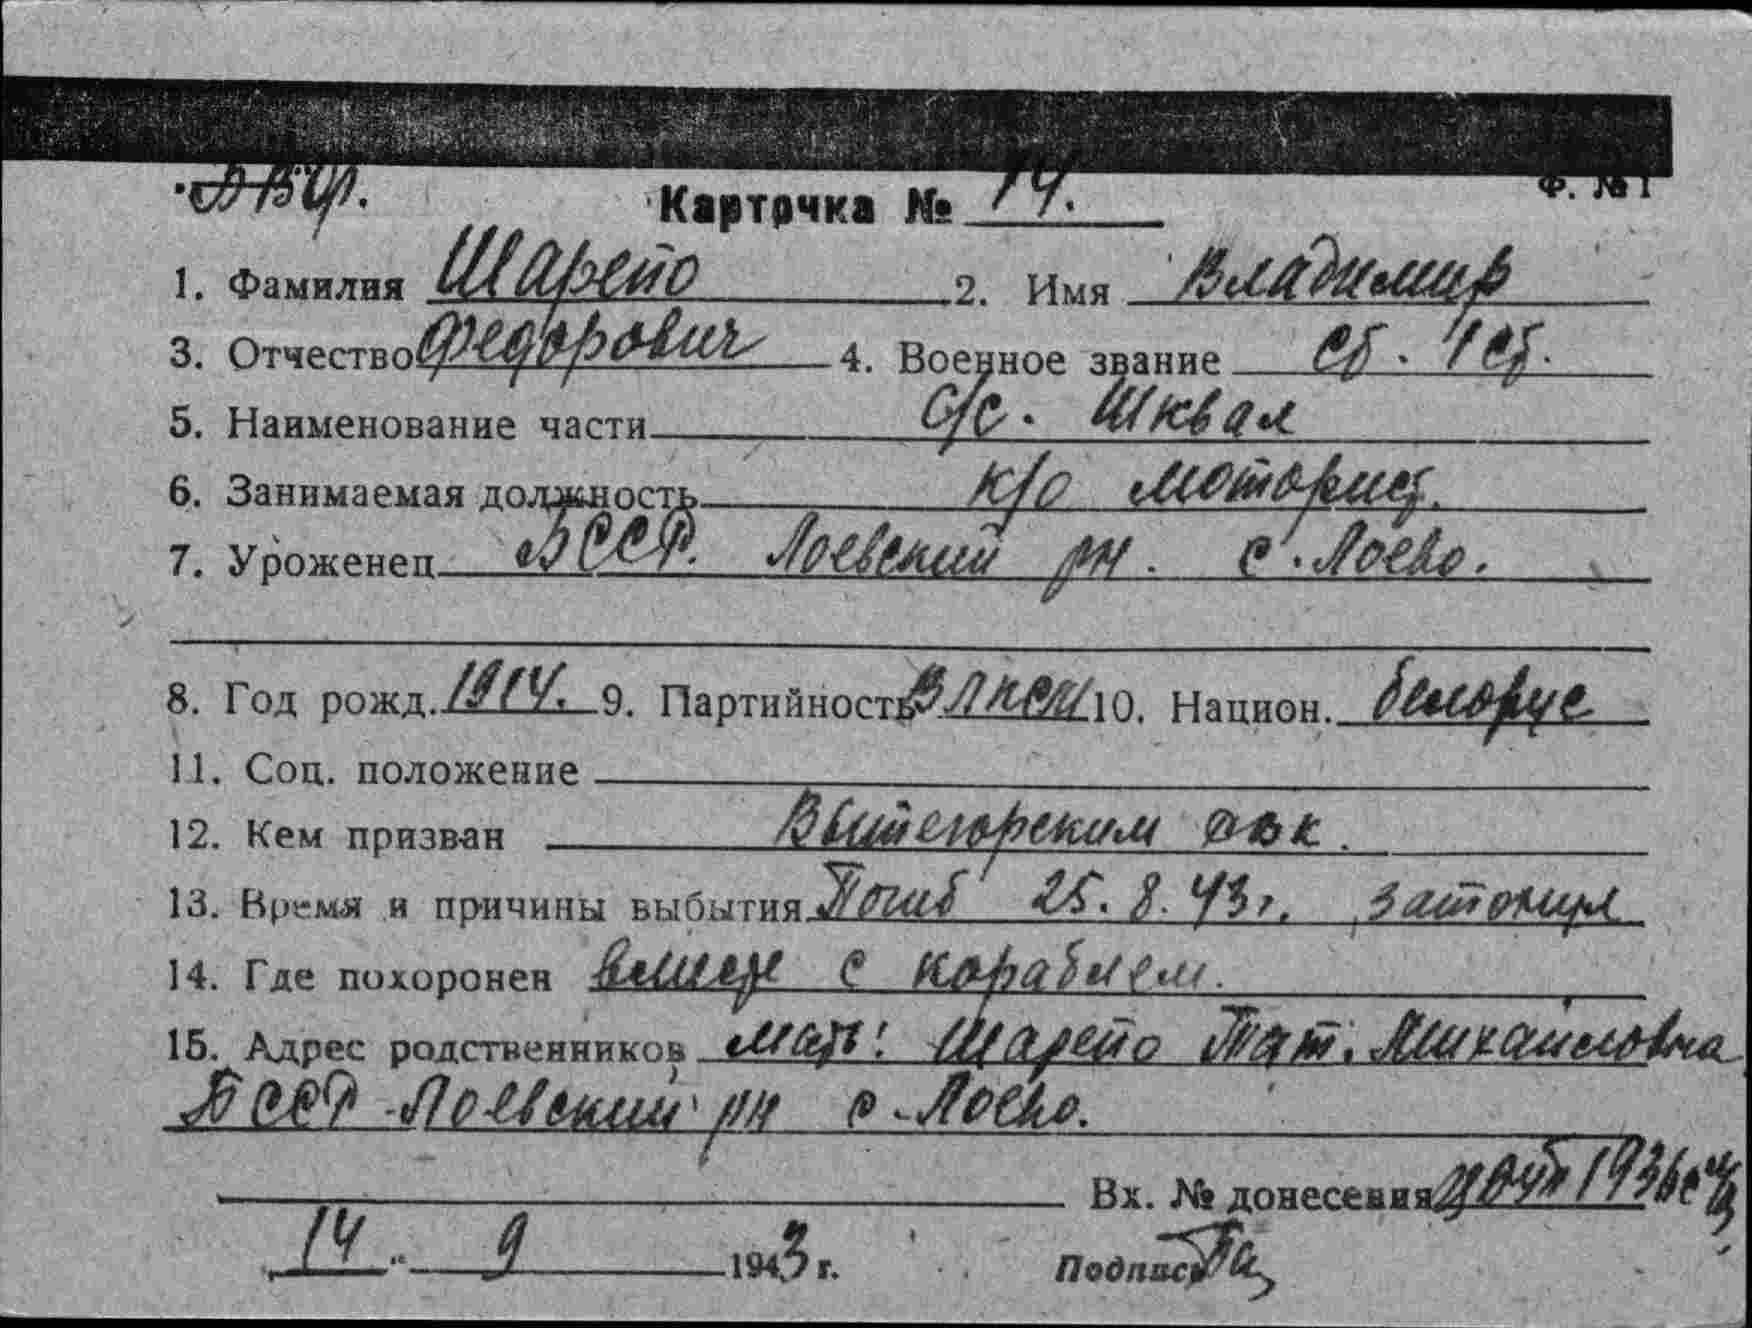 Ф. № 1
Карточка № 14.
1. Фамилия Шарейо 2. Имя Владимир
3. Отчество Федорович 4. Военное звание сб. 1 сб.
5. Наименование части С/с. Шквал
6. Занимаемая должность к/о моторист.
7. Уроженец БССР. Лоевский рн. с. Лоево.
8. Год рожд. 1914. 9. Партийность ВЛКСМ 10. Национ. белорус
11. Соц. положение
12. Кем призван Вытегорским рвк.
13. Время и причины выбытия Погиб 25.8.43г. затонул
14. Где похоронен вместе с кораблем.
15. Адрес родственников мать: Шарейо Тат. Михайловна
БССР Лоевский рн с. Лоево.
Вх. № донесения 1936
14 " 9 1943 г. Подпись